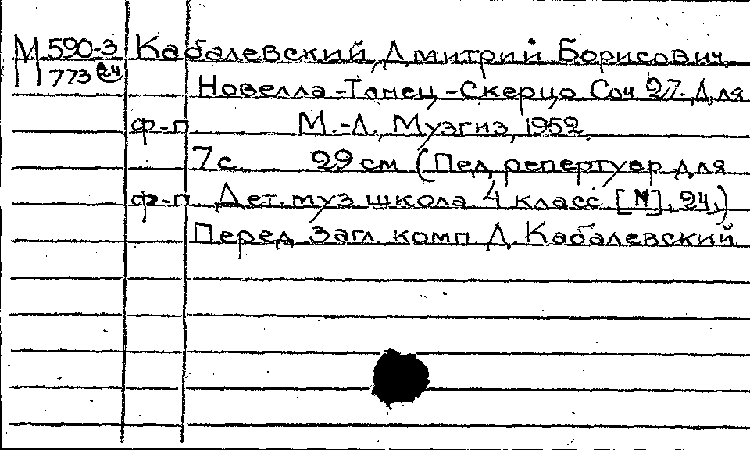 М 590-3 Кабалевский, Дмитрий Борисович
773 24 Новелла.-Танец.-Скерцо Соч 27. Для
ф-п. М.-Л., Музгиз, 1952.
7 с. 29 см (Пед. репертуар для
ф-п. Дет. муз школа 4 класс [№]. 24.)
Перед загл. комп Д. Кабалевский